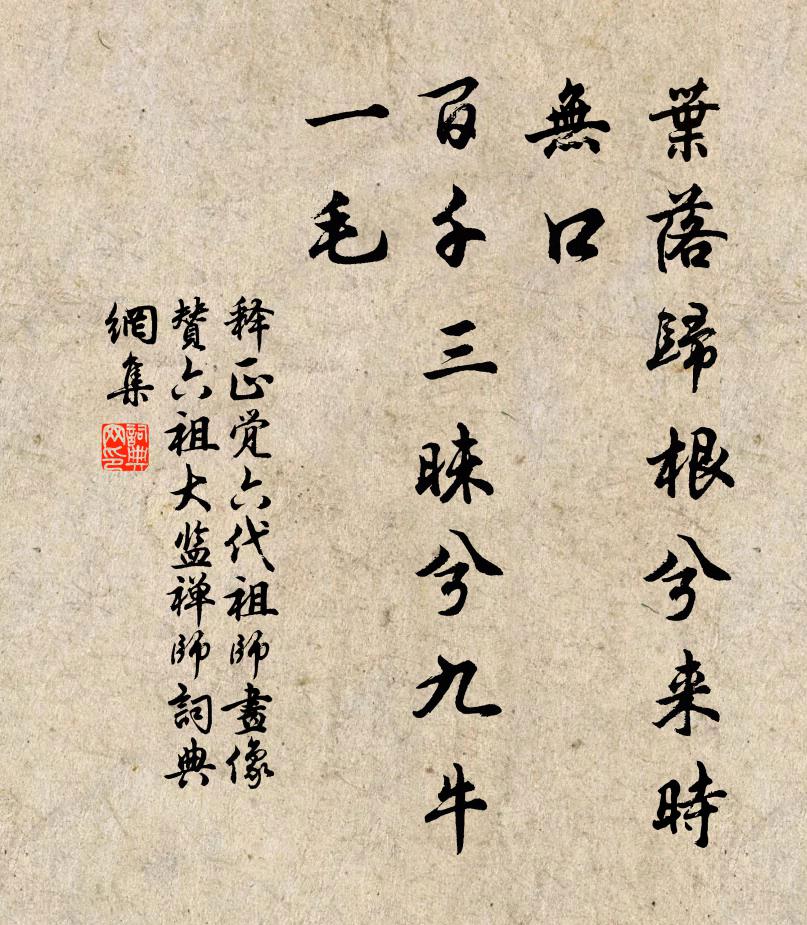 葉落歸根兮来時
無口
百千三昧兮九牛
一毛
释正觉六代祖師畫像
賛六祖大监禅師詞典
網集
詞典网印